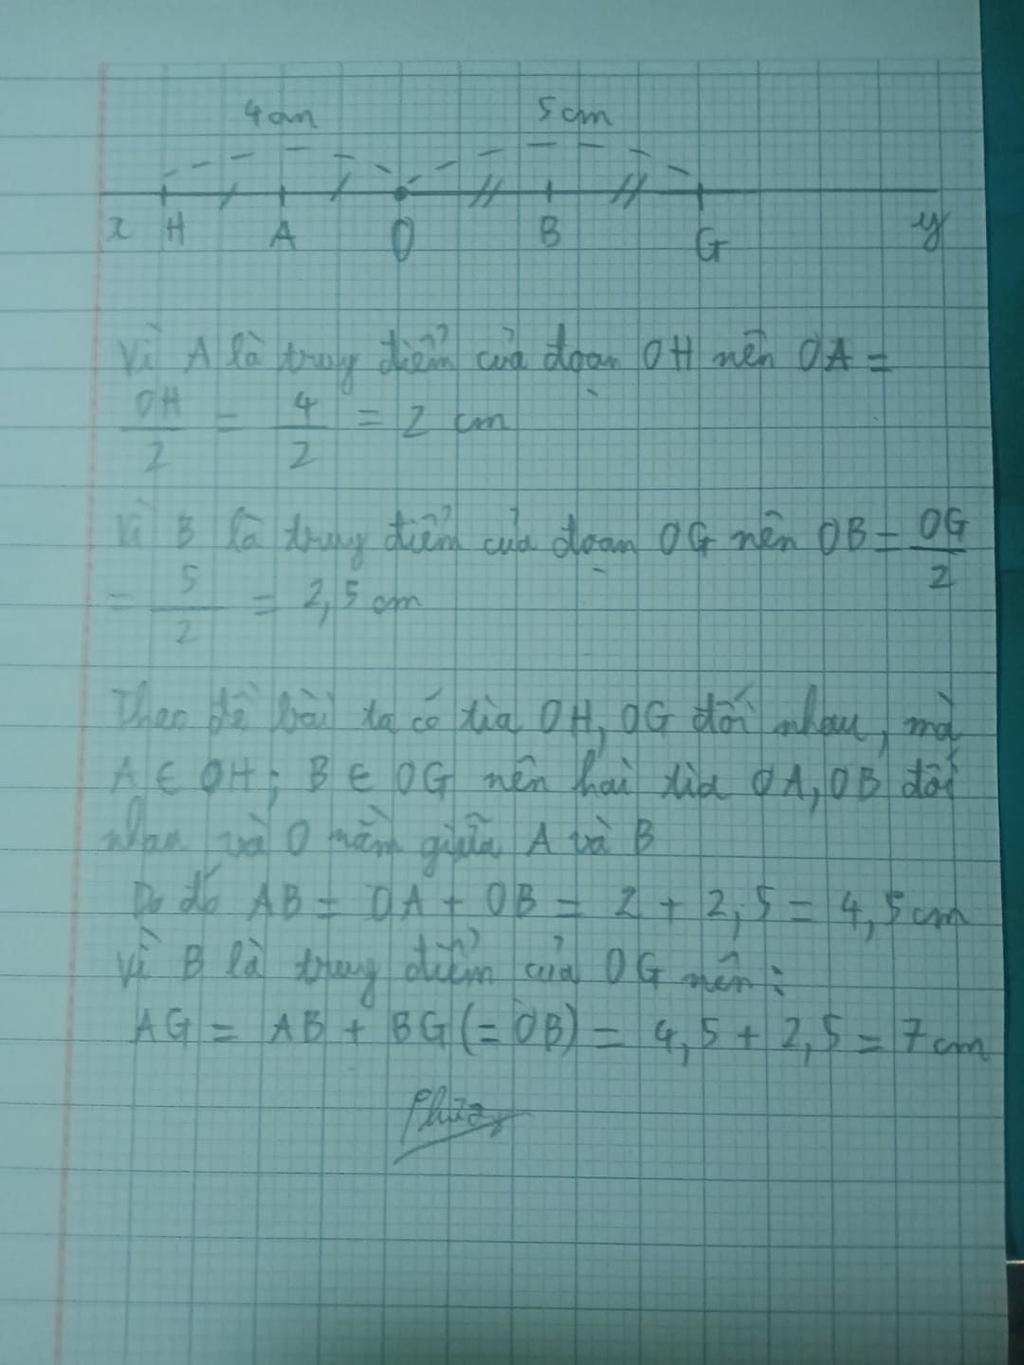 4cm 5cm
x H A O B G y
Vì A là trung điểm của đoạn OH nên OA =
OH/2 = 4/2 = 2 cm
Vì B là trung điểm của đoạn OG nên OB = OG/2
= 5/2 = 2,5 cm
Theo đề bài ta có tia OH, OG đối nhau, mà
A ∈ OH; B ∈ OG nên hai tia OA, OB đối
nhau và O nằm giữa A và B
Do đó AB = OA + OB = 2 + 2,5 = 4,5 cm
Vì B là trung điểm của OG nên:
AG = AB + BG (= OB) = 4,5 + 2,5 = 7 cm